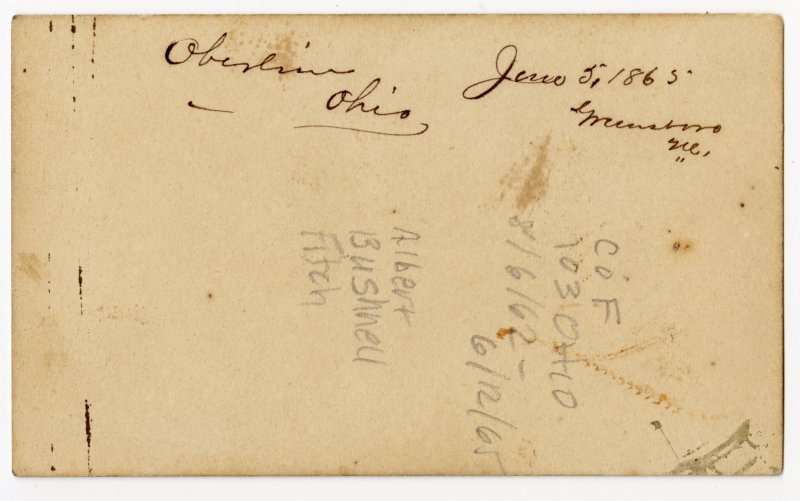 Oberlin
Ohio
June 5, 1865
Greensboro
N.C.
Albert
Bushnell
Fitch
CO F
103 OHIO
8/6/62 -
6/12/65